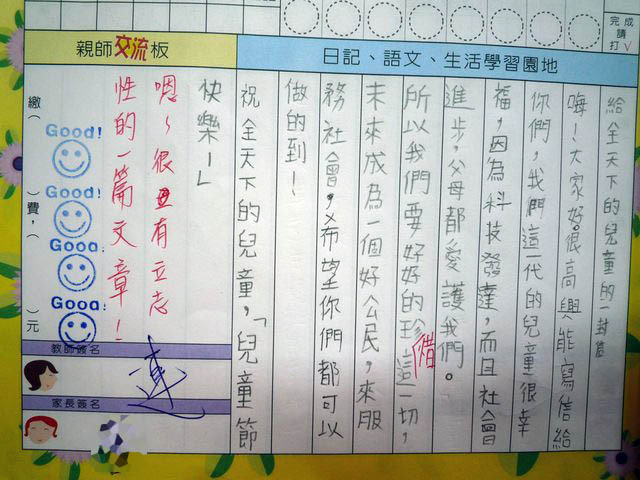 完成請打√
日記、語文、生活學習園地
給全天下的兒童的一封信
嗨!大家好。很高興能寫信給
你們,我們這一代的兒童很幸
福,因為科技發達,而且社會
進步,父母都愛護我們。
所以我們要好好的珍惜這一切,
未來成為一個好公民,來服
務社會。希望你們都可以
做的到!
祝全天下的兒童,「兒童節
快樂!」
親師交流板
嗯~很有立志
性的一篇文章!
Good!
Good!
Good!
Good!
繳( )費,( )元
教師簽名
家長簽名